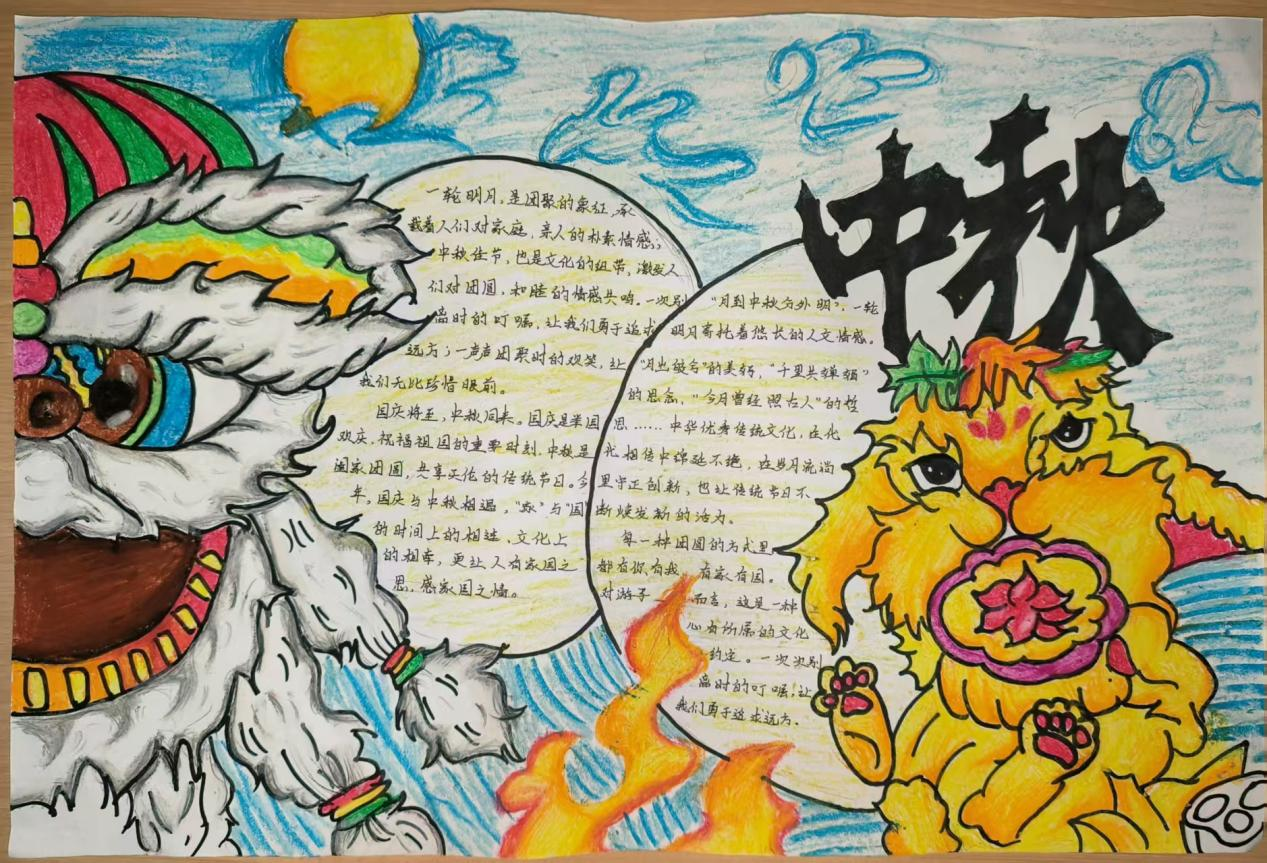 中秋
一轮明月，是团聚的象征，承
载着人们对家庭，亲人的朴素情感；
中秋佳节，也是文化的纽带，激发人
们对团圆，和睦的情感共鸣。一次别
临时的叮嘱，让我们勇于追求
远方；一声声团聚时的欢笑，让
我们无比珍惜眼前。
国庆将至，中秋同来。国庆是举国
欢庆，祝福祖国的重要时刻，中秋是
阖家团圆，共享天伦的传统节日。今
年，国庆与中秋相遇，“家”与“国”
的时间上的相连，文化上
的相牵，更让人有家国之
思，感家国之情。
“月到中秋分外明”，一轮
明月寄托着悠长的人文情感。
“月出皎兮”的美好，“千里共婵娟”
的思念，“今月曾经照古人”的哲
思……中华优秀传统文化，在代
代相传中绵延不绝，在岁月流淌
里守正创新，也让传统节日不
断焕发新的活力。
每一种团圆的方式里
都有你有我 有家有国。
对游子 而言，这是一种
心有所属的文化
约定。一次次别
临时的叮嘱，让
我们勇于追求远方。